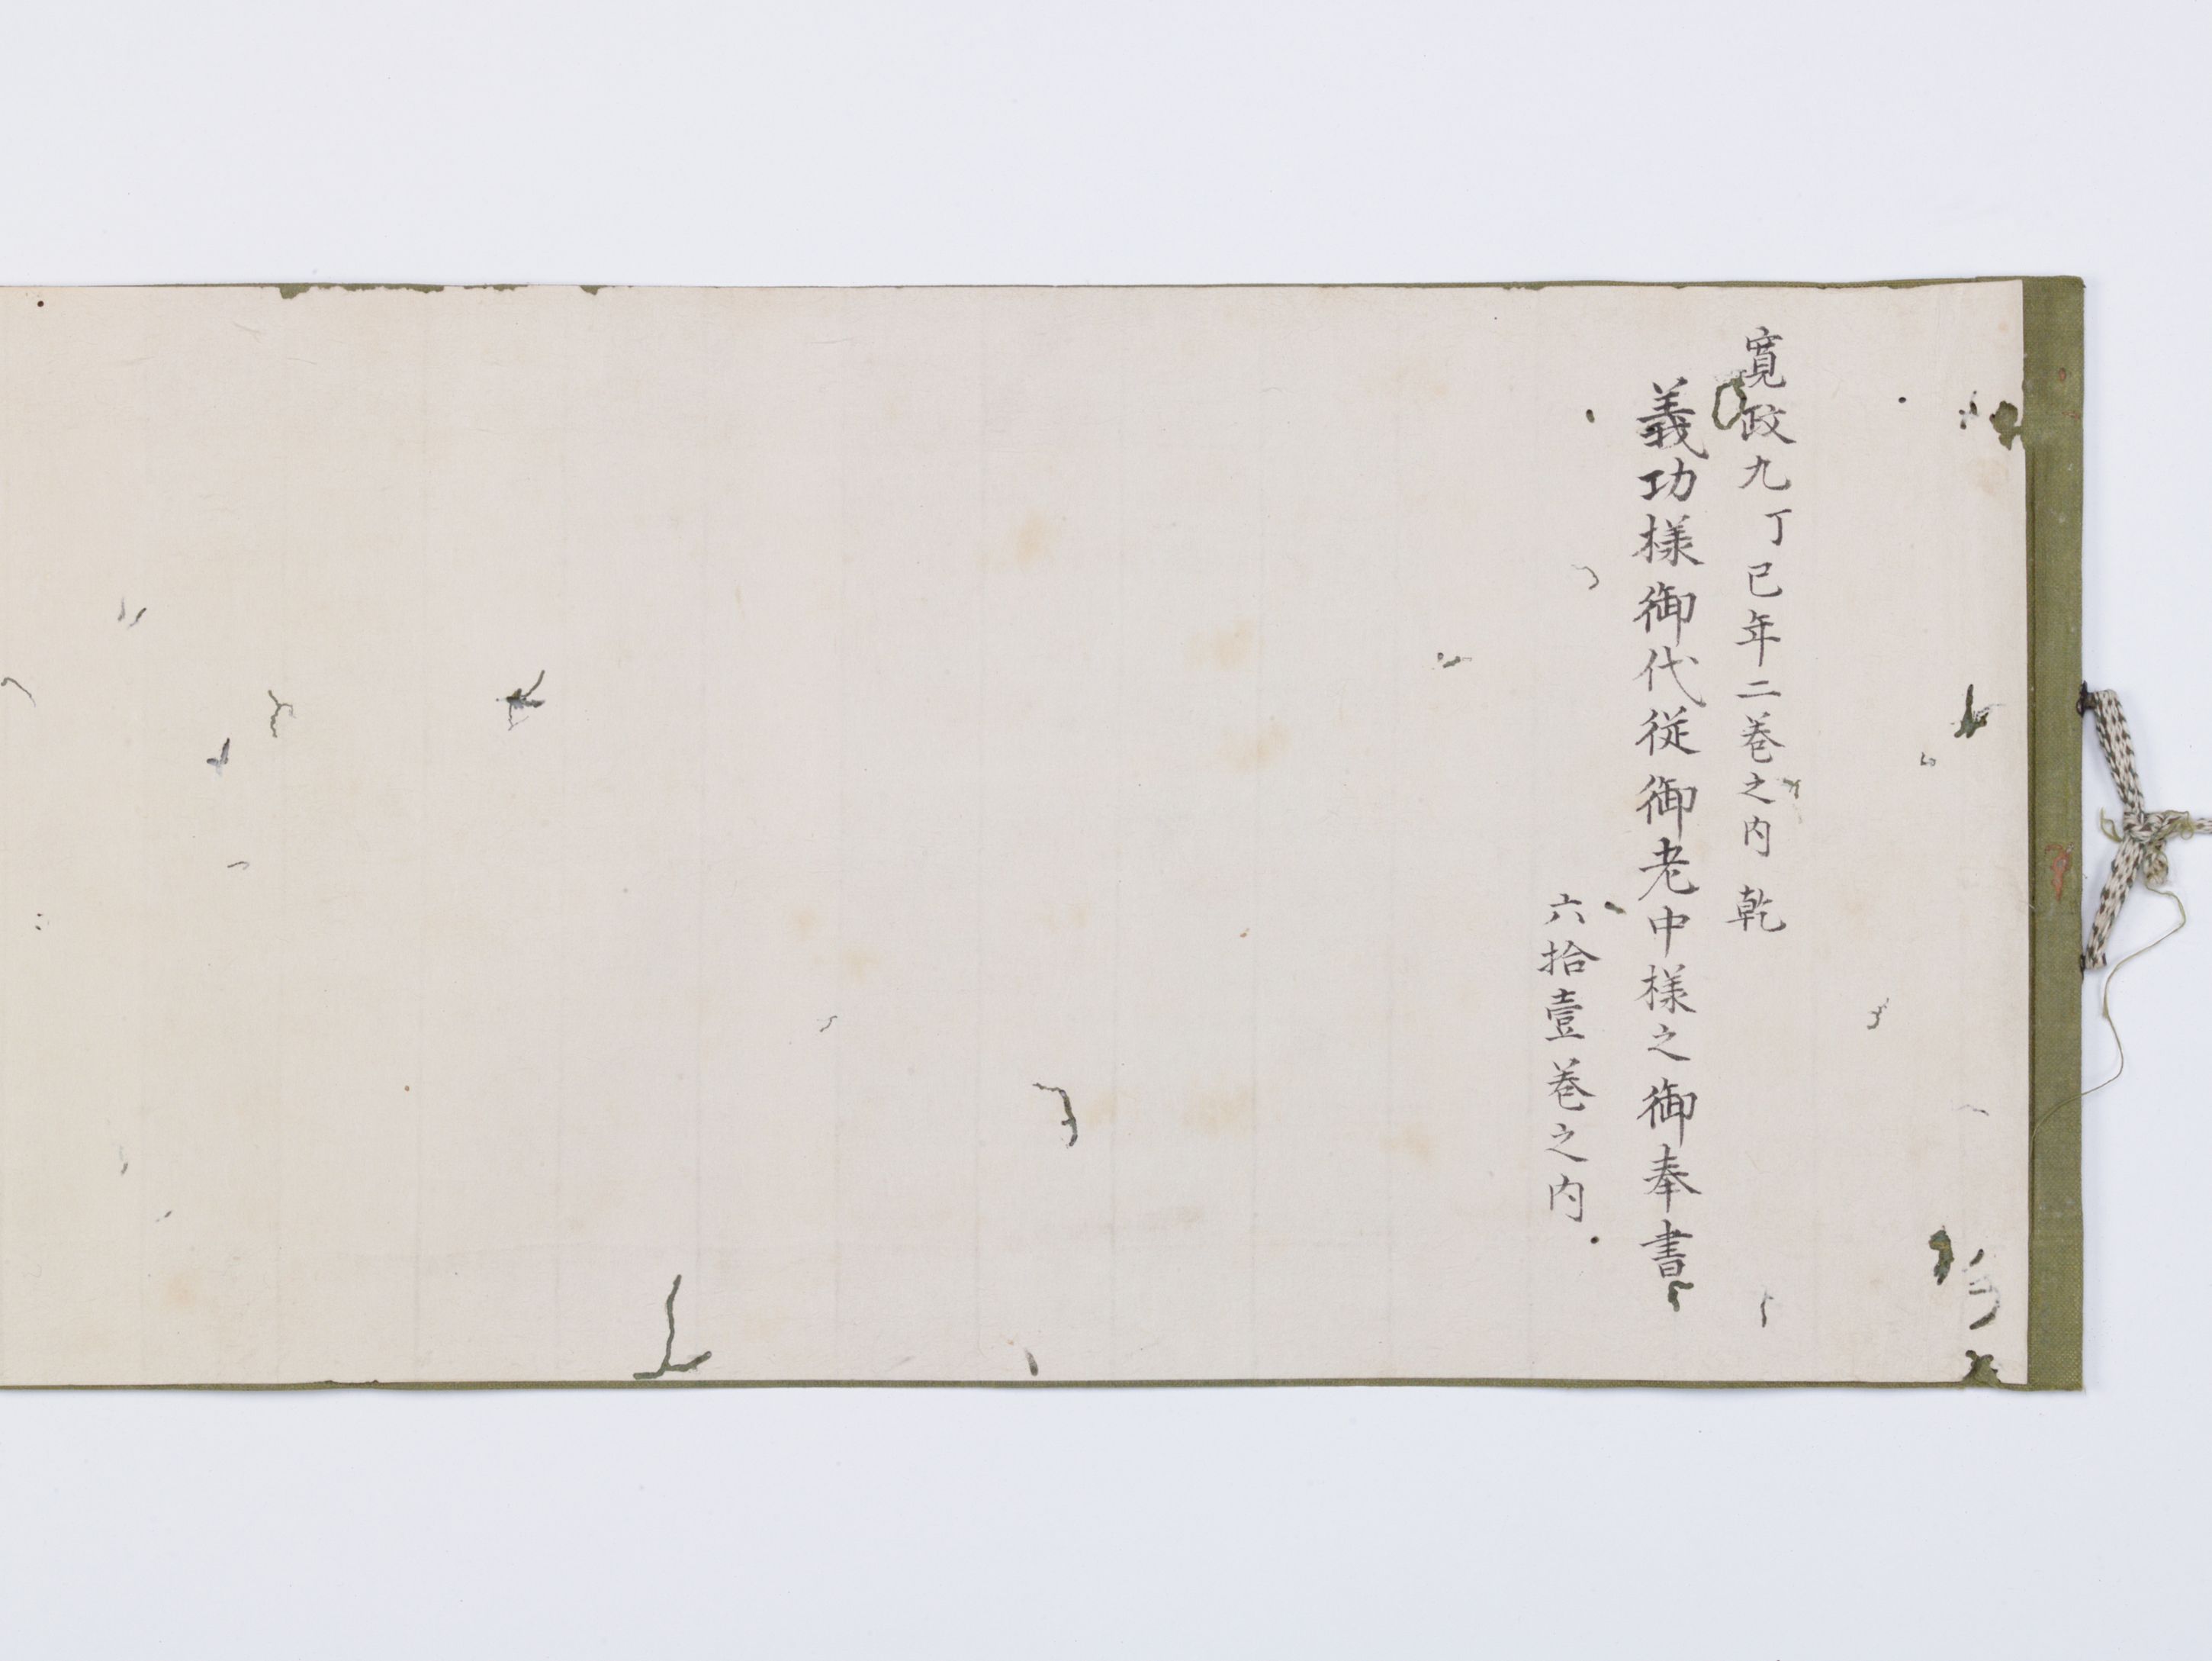 寛政九丁巳年二巻之内 乾
義功様御代従御老中様之御奉書
六拾壹巻之内